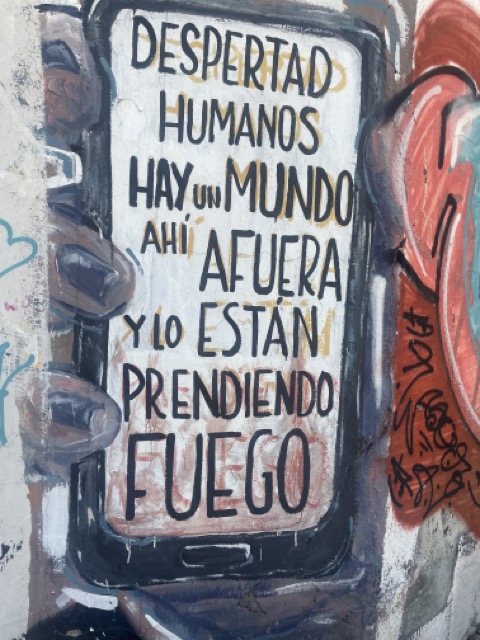 DESPERTAD
HUMANOS
HAY UN MUNDO
AHÍ AFUERA
Y LO ESTÁN
PRENDIENDO
FUEGO